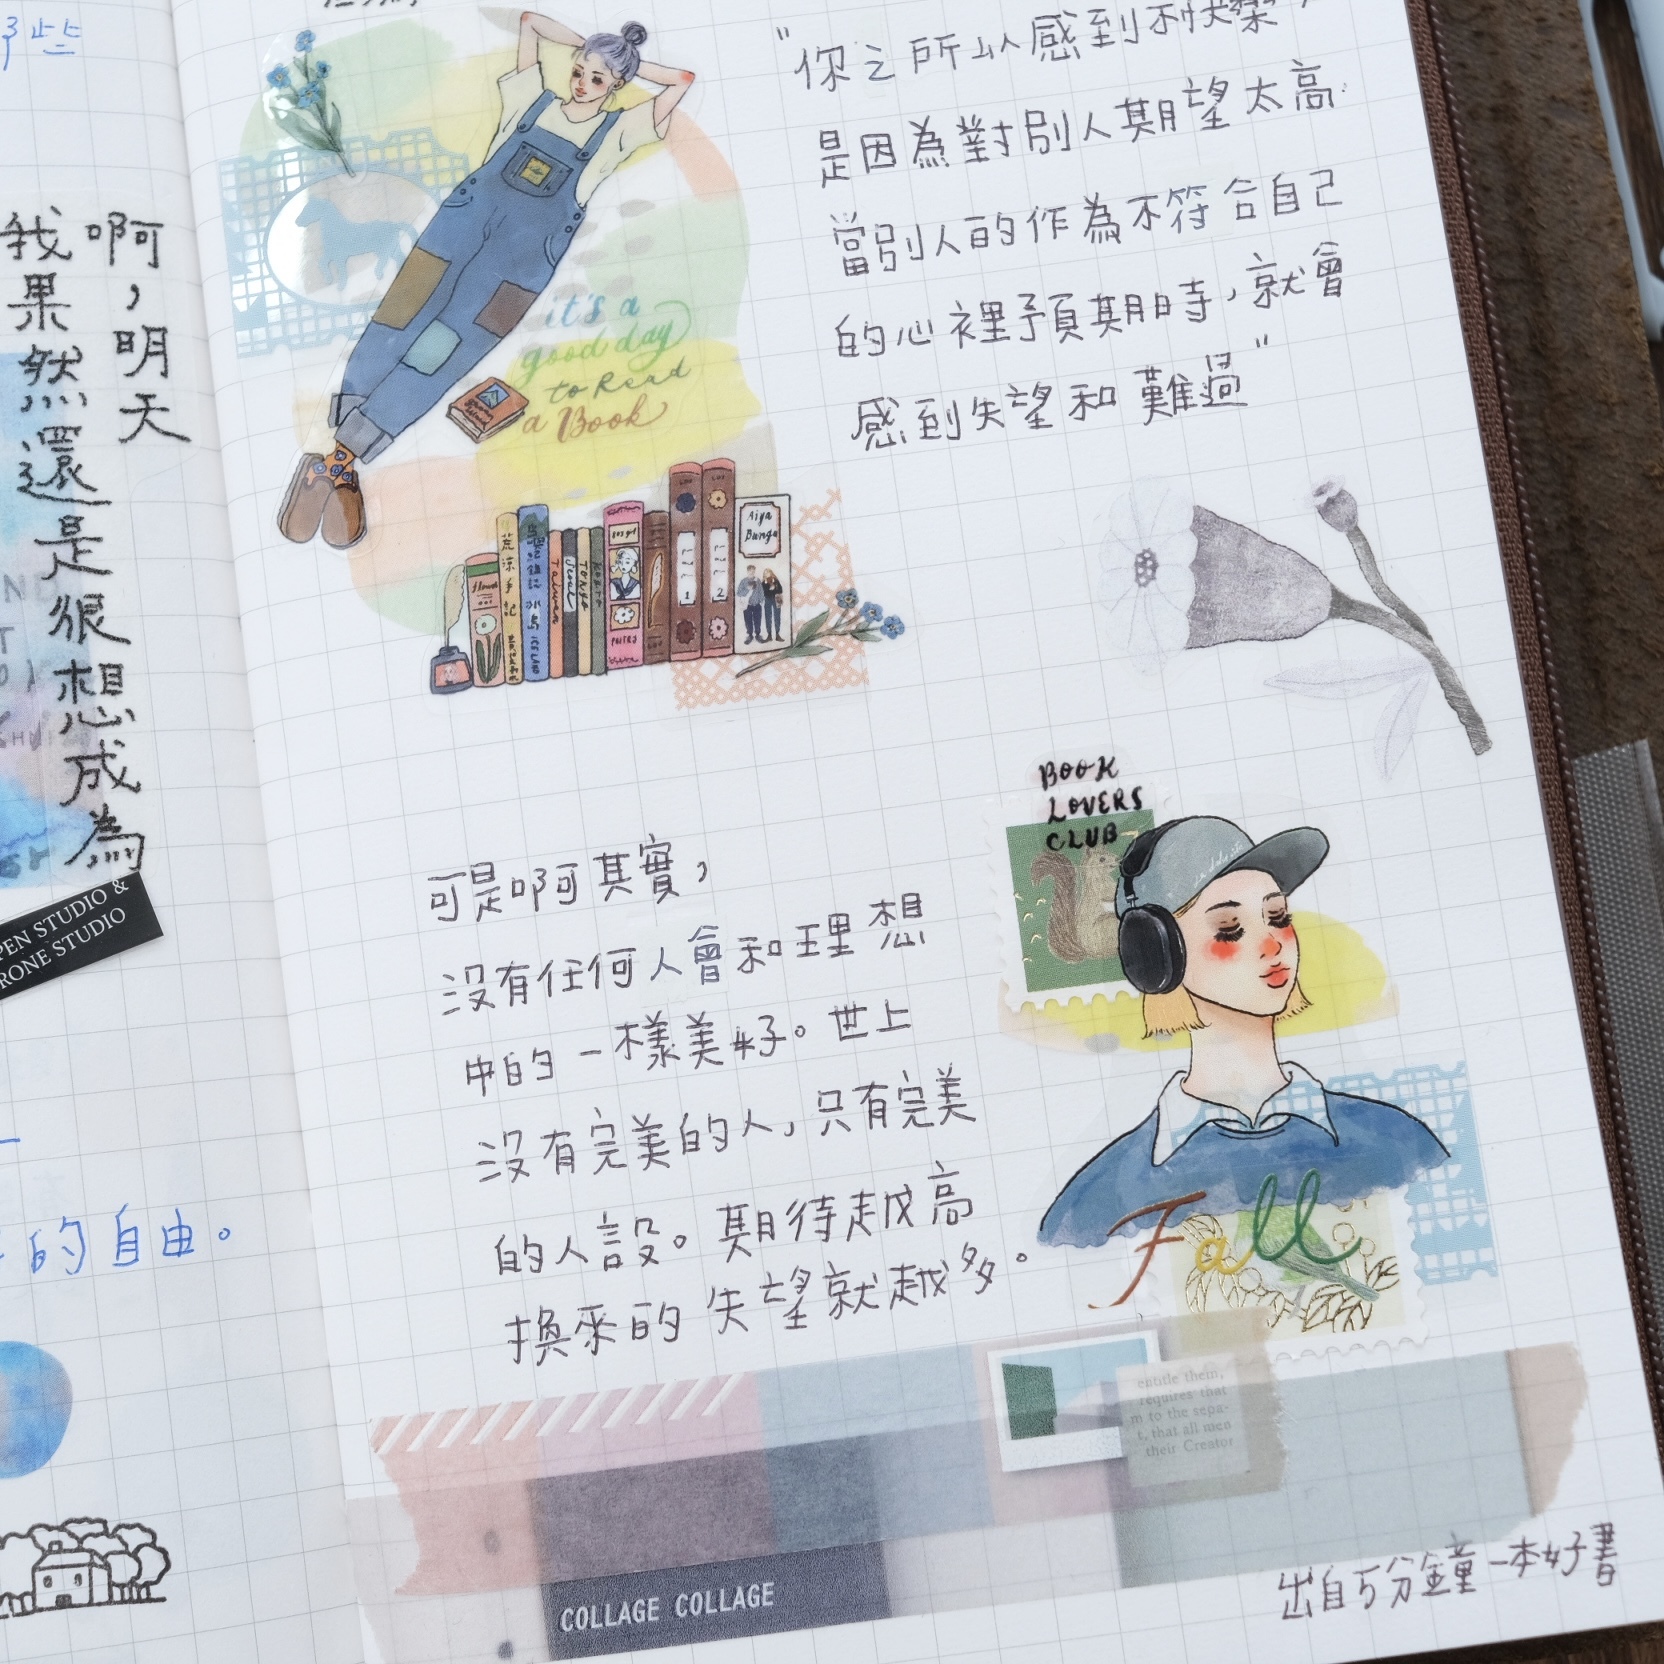 那些
啊，明天
我果然還是很想成為
PEN STUDIO &
RONE STUDIO
的自由。
"你之所以感到不快樂，
是因為對別人期望太高
當別人的作為不符合自己
的心裡預期時，就會
感到失望和難過"
it's a
good day
to Read
a Book
荒涼手記
Taiwan
Seoul
TOKYO
KYOTO
ICELAND
POETRY
1
2
Aiya
Bunga
BOOK
LOVERS
CLUB
可是啊其實，
沒有任何人會和理想
中的一樣美好。世上
沒有完美的人，只有完美
的人設。期待越高
換來的失望就越多。
Fall
entitle them,
requires that
m to the sepa-
t, that all men
their Creator
COLLAGE COLLAGE
出自5分鐘一本好書